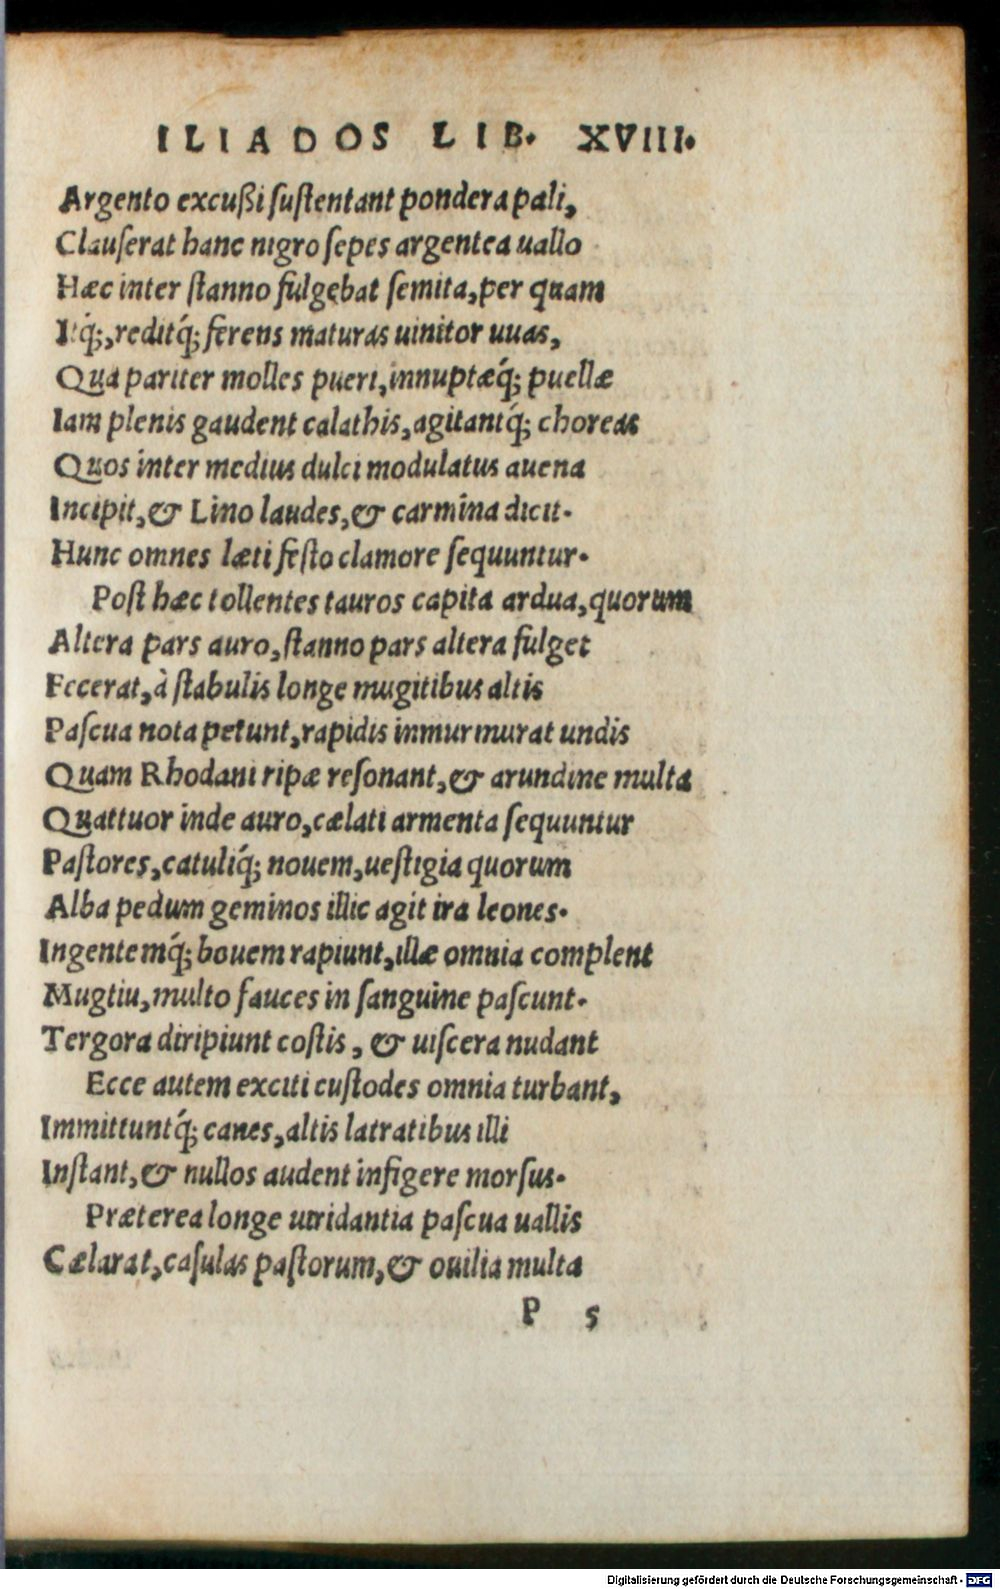 ILIADOS LIB. XVIII.
Argento excußi ſuſtentant pondera pali,
Clauſerat hanc nigro ſepes argentea uallo
Hæc inter ſtanno fulgebat ſemita, per quam
Itq́;, reditq́; ferens maturas uinitor uuas,
Qua pariter molles pueri, innuptæq́; puellæ
Iam plenis gaudent calathis, agitantq́; choreas
Quos inter medius dulci modulatus auena
Incipit, & Lino laudes, & carmina dicit.
Hunc omnes læti feſto clamore ſequuntur.
Poſt hæc tollentes tauros capita ardua, quorum
Altera pars auro, ſtanno pars altera fulget
Fecerat, à ſtabulis longe mugitibus altis
Paſcua nota petunt, rapidis inmurmurat undis
Quam Rhodani ripæ reſonant, & arundine multa
Quattuor inde auro, cælati armenta ſequuntur
Paſtores, catuliq́; nouem, ueſtigia quorum
Alba pedum geminos illic agit ira leones.
Ingentemq́; bouem rapiunt, illæ omnia complent
Mugtiu, multo fauces in ſanguine paſcunt.
Tergora diripiunt coſtis, & uiſcera nudant
Ecce autem exciti cuſtodes omnia turbant,
Immittuntq́; canes, altis latratibus illi
Inſtant, & nullos audent infigere morſus.
Præterea longe uiridantia paſcua uallis
Cælarat, caſulas paſtorum, & ouilia multa
P 5
Digitalisierung gefördert durch die Deutsche Forschungsgemeinschaft - DFG